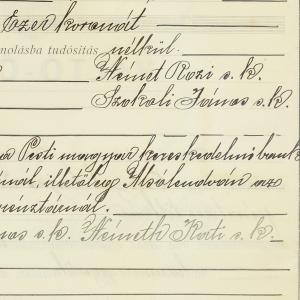 Ezer koronát
nolásba tudósítás nélkül.
Német Rozi s. k.
Szokoli János s. k.
a Pesti magyar kereskedelmi bank
nál, illetőleg Alsólendván az
énztárnál.
nos s. k. Németh Kati s. k.